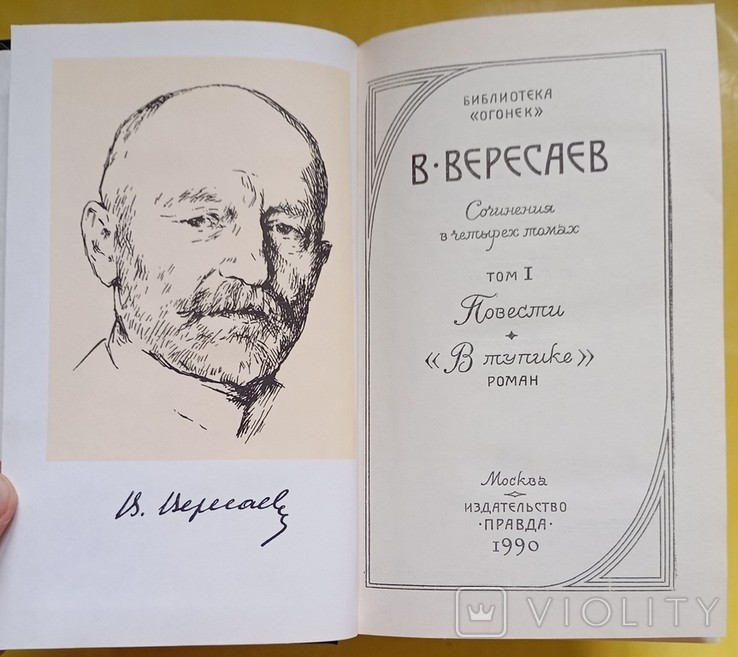 В. Вересаев
БИБЛИОТЕКА
«ОГОНЕК»
В·ВЕРЕСАЕВ
Сочинения
в четырех томах
ТОМ I
Повести
«В тупике»
РОМАН
Москва
ИЗДАТЕЛЬСТВО
·ПРАВДА·
1990
VIOLITY